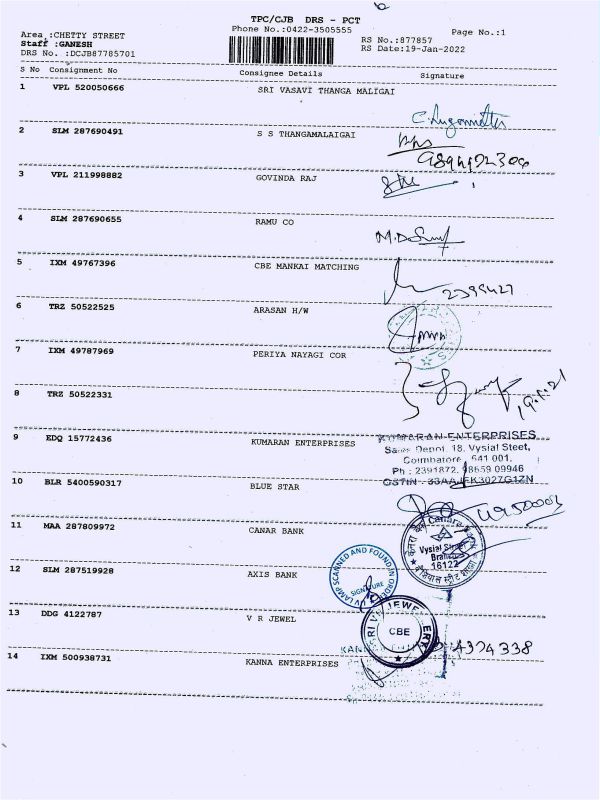 TPC/CJB DRS - PCT
Phone No.:0422-3505555
Page No.:1
Area :CHETTY STREET
Staff :GANESH
DRS No. :DCJB87785701
RS No.:877857
RS Date:19-Jan-2022
S No Consignment No Consignee Details Signature
1 VPL 520050666 SRI VASAVI THANGA MALIGAI
2 SLM 287690491 S S THANGAMALAIGAI
3 VPL 211998882 GOVINDA RAJ
4 SLM 287690655 RAMU CO
5 IXM 49767396 CBE MANKAI MATCHING
6 TRZ 50522525 ARASAN H/W
7 IXM 49787969 PERIYA NAYAGI COR
8 TRZ 50522331
9 EDQ 15772436 KUMARAN ENTERPRISES
KUMARAN ENTERPRISES
Sales Depot, 18, Vysial Steet,
Coimbatore - 641 001.
Ph : 2391872, 98659 09946
10 BLR 5400590317 BLUE STAR
11 MAA 287809972 CANAR BANK
Vysial Street
Branch
16122
12 SLM 287519928 AXIS BANK
SCANNED AND FOUND IN ORDER
SIGNATURE
13 DDG 4122787 V R JEWEL
SRI V JEWELLERY
CBE
4374338
14 IXM 500938731 KANNA ENTERPRISES